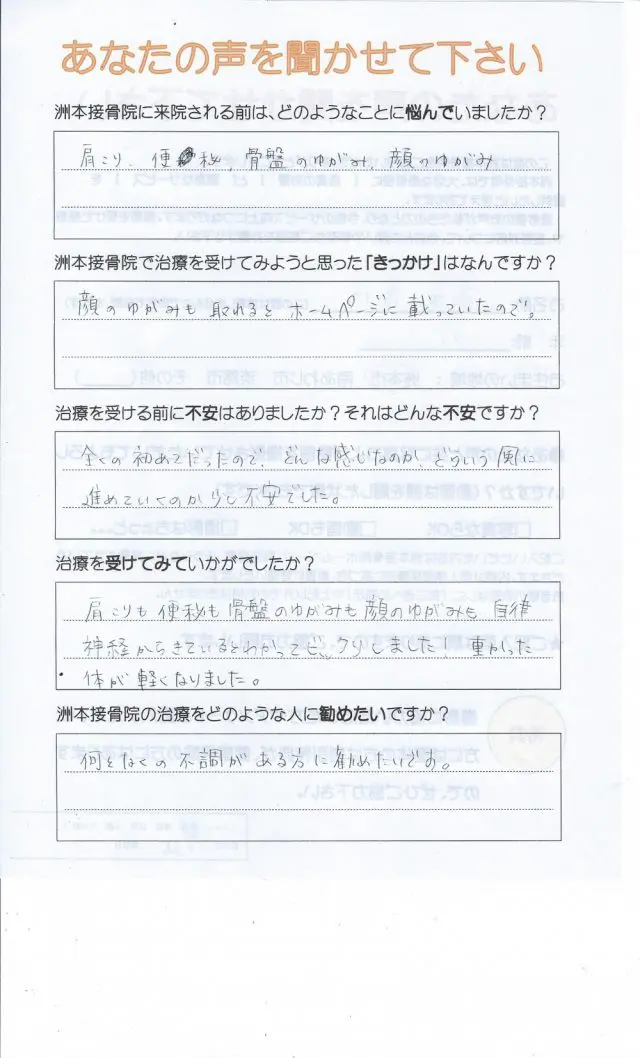 あなたの声を聞かせて下さい
洲本接骨院に来院される前は、どのようなことに悩んでいましたか？
肩こり、便秘、骨盤のゆがみ、顔のゆがみ
洲本接骨院で治療を受けてみようと思った「きっかけ」はなんですか？
顔のゆがみも取れるとホームページに載っていたので。
治療を受ける前に不安はありましたか？それはどんな不安ですか？
全くの初めてだったので、どんな感じなのか、どういう風に
進めていくのか少し不安でした。
治療を受けてみていかがでしたか？
肩こりも便秘も骨盤のゆがみも顔のゆがみも自律
神経からきているとわかってビックリしました！重かった
体が軽くなりました。
洲本接骨院の治療をどのような人に勧めたいですか？
何となくの不調がある方に勧めたいです。